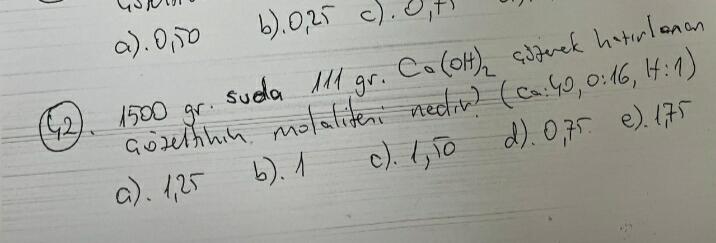 a). 0,50 b). 0,25 c). 0,75
42. 1500 gr. suda 111 gr. Ca(OH)2 çözerek hazırlanan
çözeltinin molalitesi nedir? (Ca:40, O:16, H:1)
a). 1,25 b). 1 c). 1,50 d). 0,75. e). 1,75